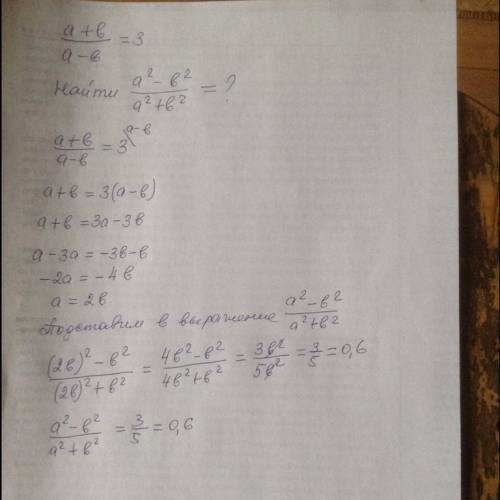 (a+в)/(a-в) = 3
Найти (a²-в²)/(a²+в²) = ?
(a+в)/(a-в) = 3 \a-в
a+в = 3(a-в)
a+в = 3a-3в
a-3a = -3в-в
-2a = -4в
a = 2в
Подставим в выражение (a²-в²)/(a²+в²)
((2в)²-в²)/((2в)²+в²) = (4в²-в²)/(4в²+в²) = 3в²/5в² = 3/5 = 0,6
(a²-в²)/(a²+в²) = 3/5 = 0,6